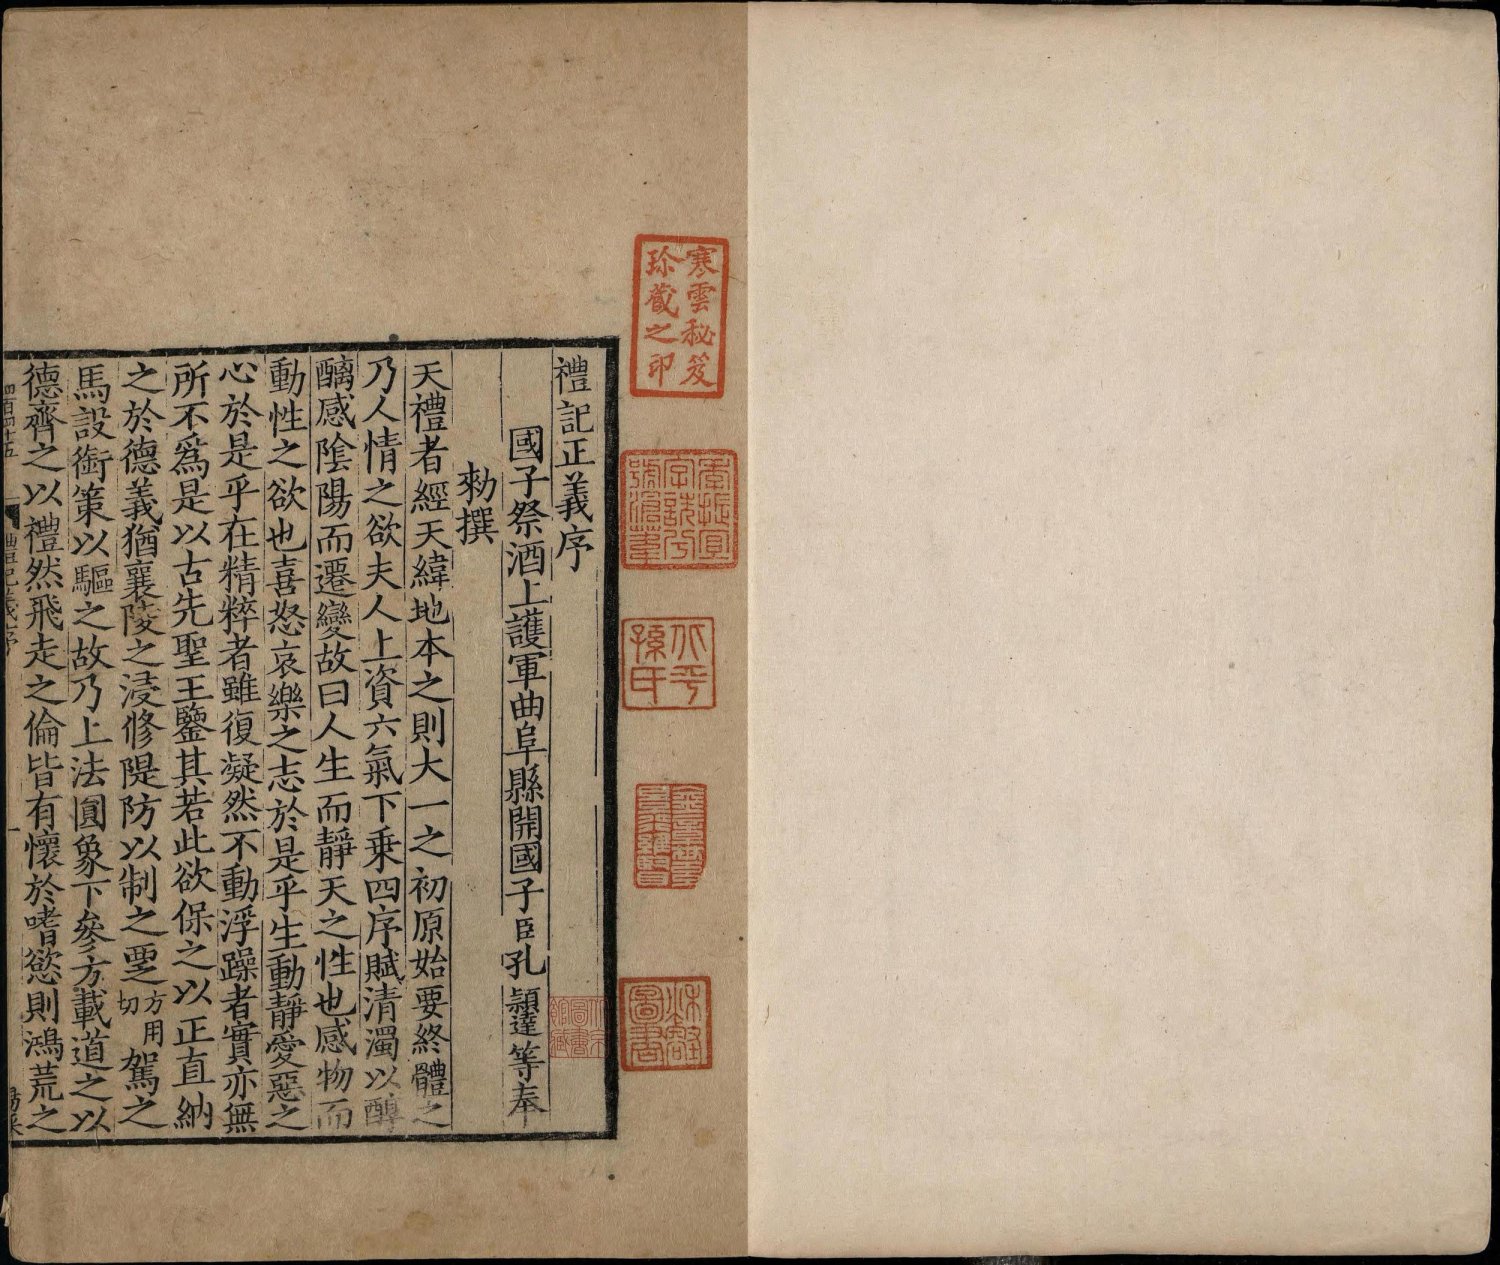 寒雲秘笈
珍藏之印
北平
孫氏
禮記正義序
國子祭酒上護軍曲阜縣開國子臣孔穎達等奉
勑撰
夫禮者經天緯地本之則大一之初原始要終體之
乃人情之欲夫人上資六氣下乗四序賦清濁以醇
醨感隂陽而遷變故曰人生而靜天之性也感物而
動性之欲也喜怒哀樂之志於是乎生動靜愛惡之
心於是乎在精粹者雖復凝然不動浮躁者實亦無
所不爲是以古先聖王鑒其若此欲保之以正直納
之於德義猶襄陵之浸修隄防以制之覂方用切駕之
馬設銜策以驅之故乃上法圓象下參方載道之以
德齊之以禮然飛走之倫皆有懷於嗜慾則鴻荒之
四百四十五